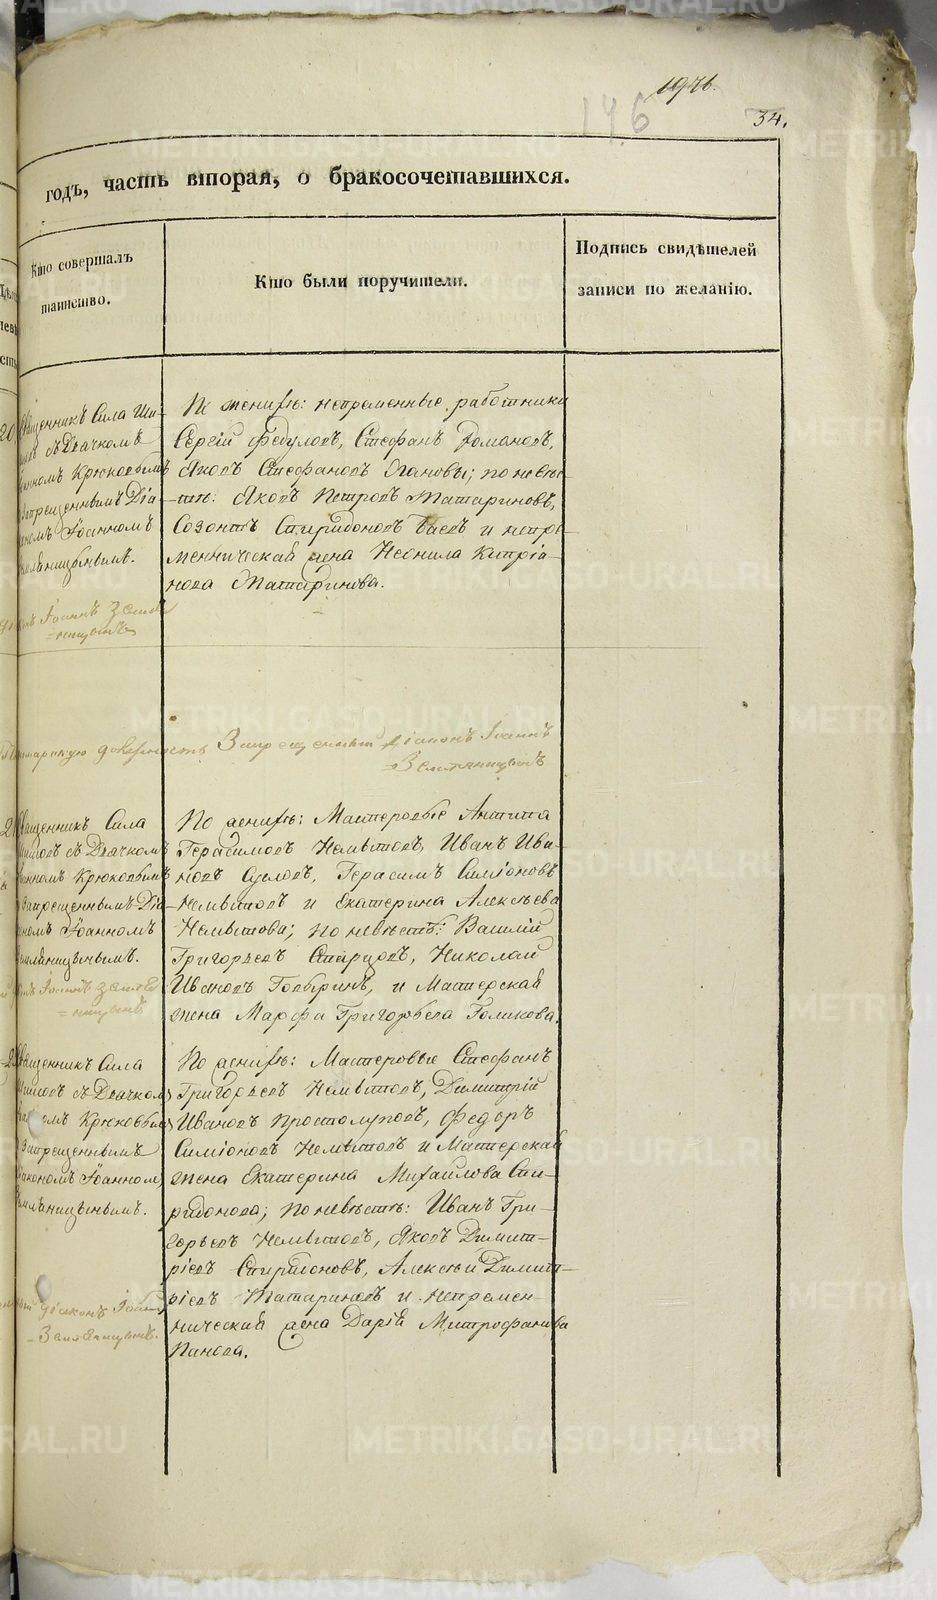 197б.
146
34.
годъ, часть вторая, о бракосочетавшихся.
Кто совершалъ
таинство.
Кто были поручители.
Подпись свидѣтелей
записи по желанію.
Священникъ Сила
съ Дьячкомъ
Крюковымъ
запрещеннымъ Діа-
Іоанномъ
По женихѣ: непременные работники
Сергій Федуловъ, Стефанъ Романовъ,
Яковъ Стефановъ Пановы; по невѣс-
тѣ: Яковъ Петровъ Татариновъ,
Созонтъ Спиридоновъ Баевъ и непре-
менническая жена Неонила Кипріа-
нова Татаринова.
Іоаннъ
Запрещенный діаконъ Іоаннъ
Земляницынъ
Священникъ Сила
съ Дьячкомъ
Крюковымъ
запрещеннымъ Діа-
Іоанномъ
Земляницынымъ.
По женихѣ: Мастеровые Антипа
Герасимовъ Немытовъ, Иванъ Ива-
новъ Сусловъ, Герасимъ Симіоновъ
Немытовъ и Екатерина Алексѣева
Немытова; по невѣстѣ: Василій
Григорьевъ Старцовъ, Николай
Ивановъ Голыринъ, и Мастерская
жена Марфа Григорьева Голикова.
Священникъ Сила
съ Дьячкомъ
Крюковымъ
Запрещеннымъ
Діакономъ Іоанномъ
Земляницынымъ.
По женихѣ: Мастеровые Стефанъ
Григорьевъ Немытовъ, Димитрій
Ивановъ Простолуповъ, Федоръ
Симіоновъ Немытовъ и Мастерская
жена Екатерина Михайлова Спи-
ридонова; по невѣстѣ: Иванъ Гри-
горьевъ Немытовъ, Яковъ Димит-
ріевъ Спиридоновъ, Алексѣй Димит-
ріевъ Татариновъ и непремен-
ническая жена Дарія Митрофанова
Панова.
діаконъ
Земляницынъ.
METRIKI.GASO-URAL.RU